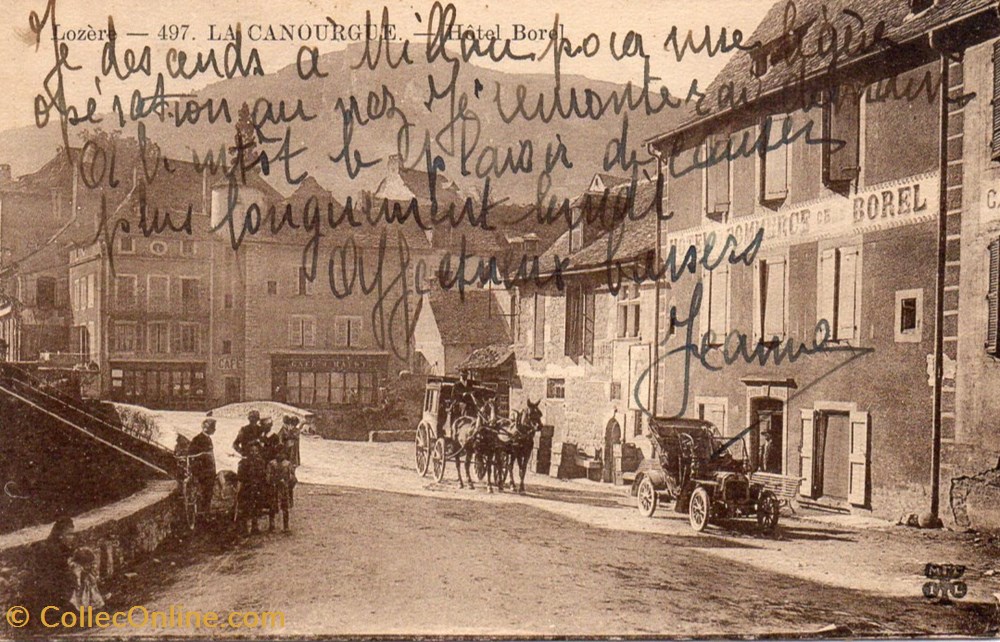 Lozère — 497. LA CANOURGUE. — Hôtel Borel
Je descends à Millau pour une légère
opération au nez Je remonterai demain
A bientôt le plaisir de causer
plus longuement lundi
Affectueux baisers
Jeanne
COMMERCE BOREL
CAFÉ
MTIL
© CollecOnline.com